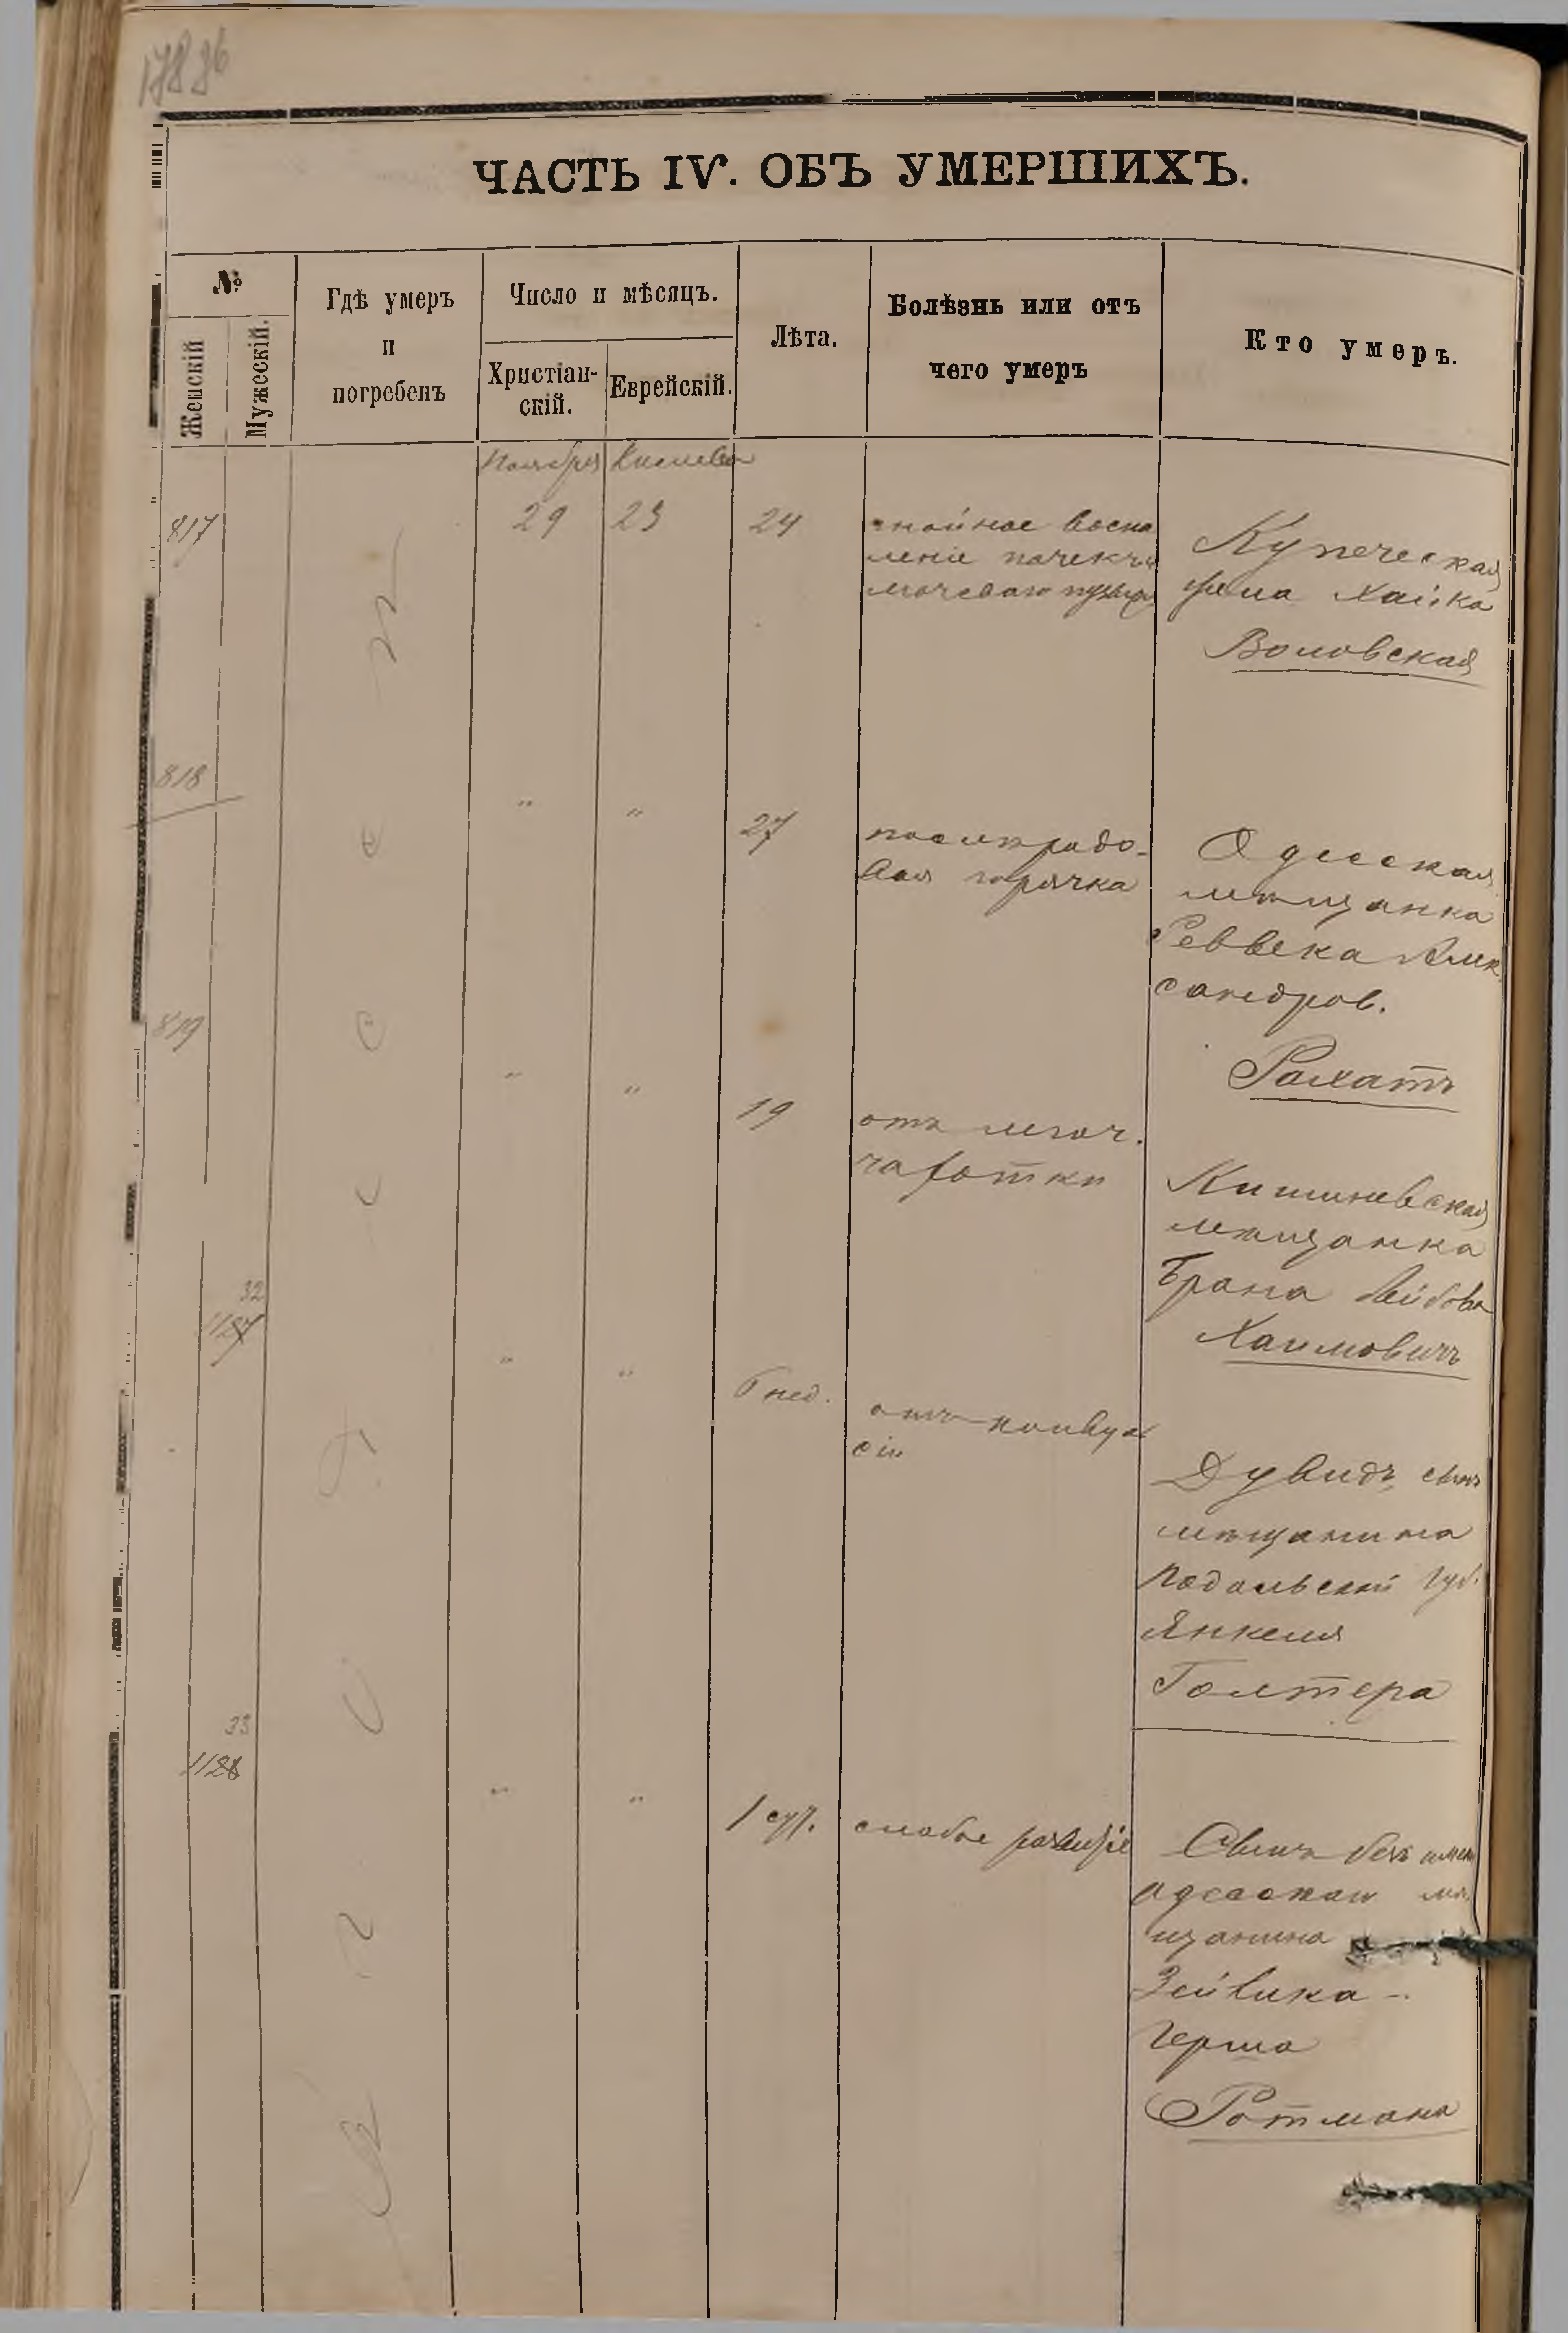 ЧАСТЬ IV. ОБЪ УМЕРШИХЪ.
№
Женскій
Мужескій.
Гдѣ умеръ
и
погребенъ
Число и мѣсяцъ.
Христіан-
скій.
Еврейскій.
Лѣта.
Болѣзнь или отъ
чего умеръ
Кто умеръ.
Ноября Кислева
817 29 23 24
гнойное воспа
леніе почекъ и
мочеваго пузыря
Купеческая
жена Хайка
Воловская
818 " " 27
послѣродо-
вая горячка
Одесская
мѣщанка
Реввека Алек
сандров.
Рахатъ
819 " " 19
отъ легоч.
чахотки
Кишиневская
мѣщанка
Брана Лейбова
Хаимовичъ
32
1127 " " 6 нед.
отъ конвуль
сіи
Дувидъ, сынъ
мѣщанина
Подольской губ.
Янкеля
Голтера
33
1128 " " 1 сут.
слабое развитіе
Сынъ безъ имени
одесскаго мѣ
щанина
Зейвика-
Герша
Ротмана
Одесса